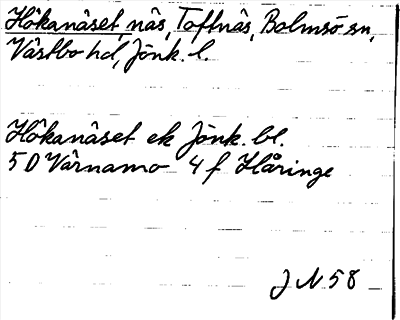 Hökanäset, näs, Toftnäs, Bolmsö sn,
Västbo hd, Jönk. l.
Hökanäset ek Jönk. bl.
5 D Värnamo 4 f Håringe
J N 58